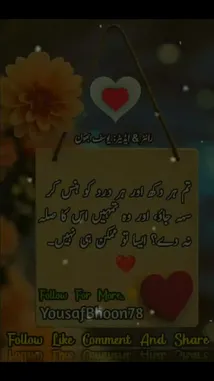 رائٹر & ایڈیٹ: یوسف بھون
تم ہر دکھ اور ہر درد کو ہنس کر
سہہ جاؤ، اور وہ تمہیں اس کا صلہ
نہ دے؟ ایسا تو ممکن ہی نہیں۔
Follow For More.
YousafBhoon78
Follow Like Comment And Share